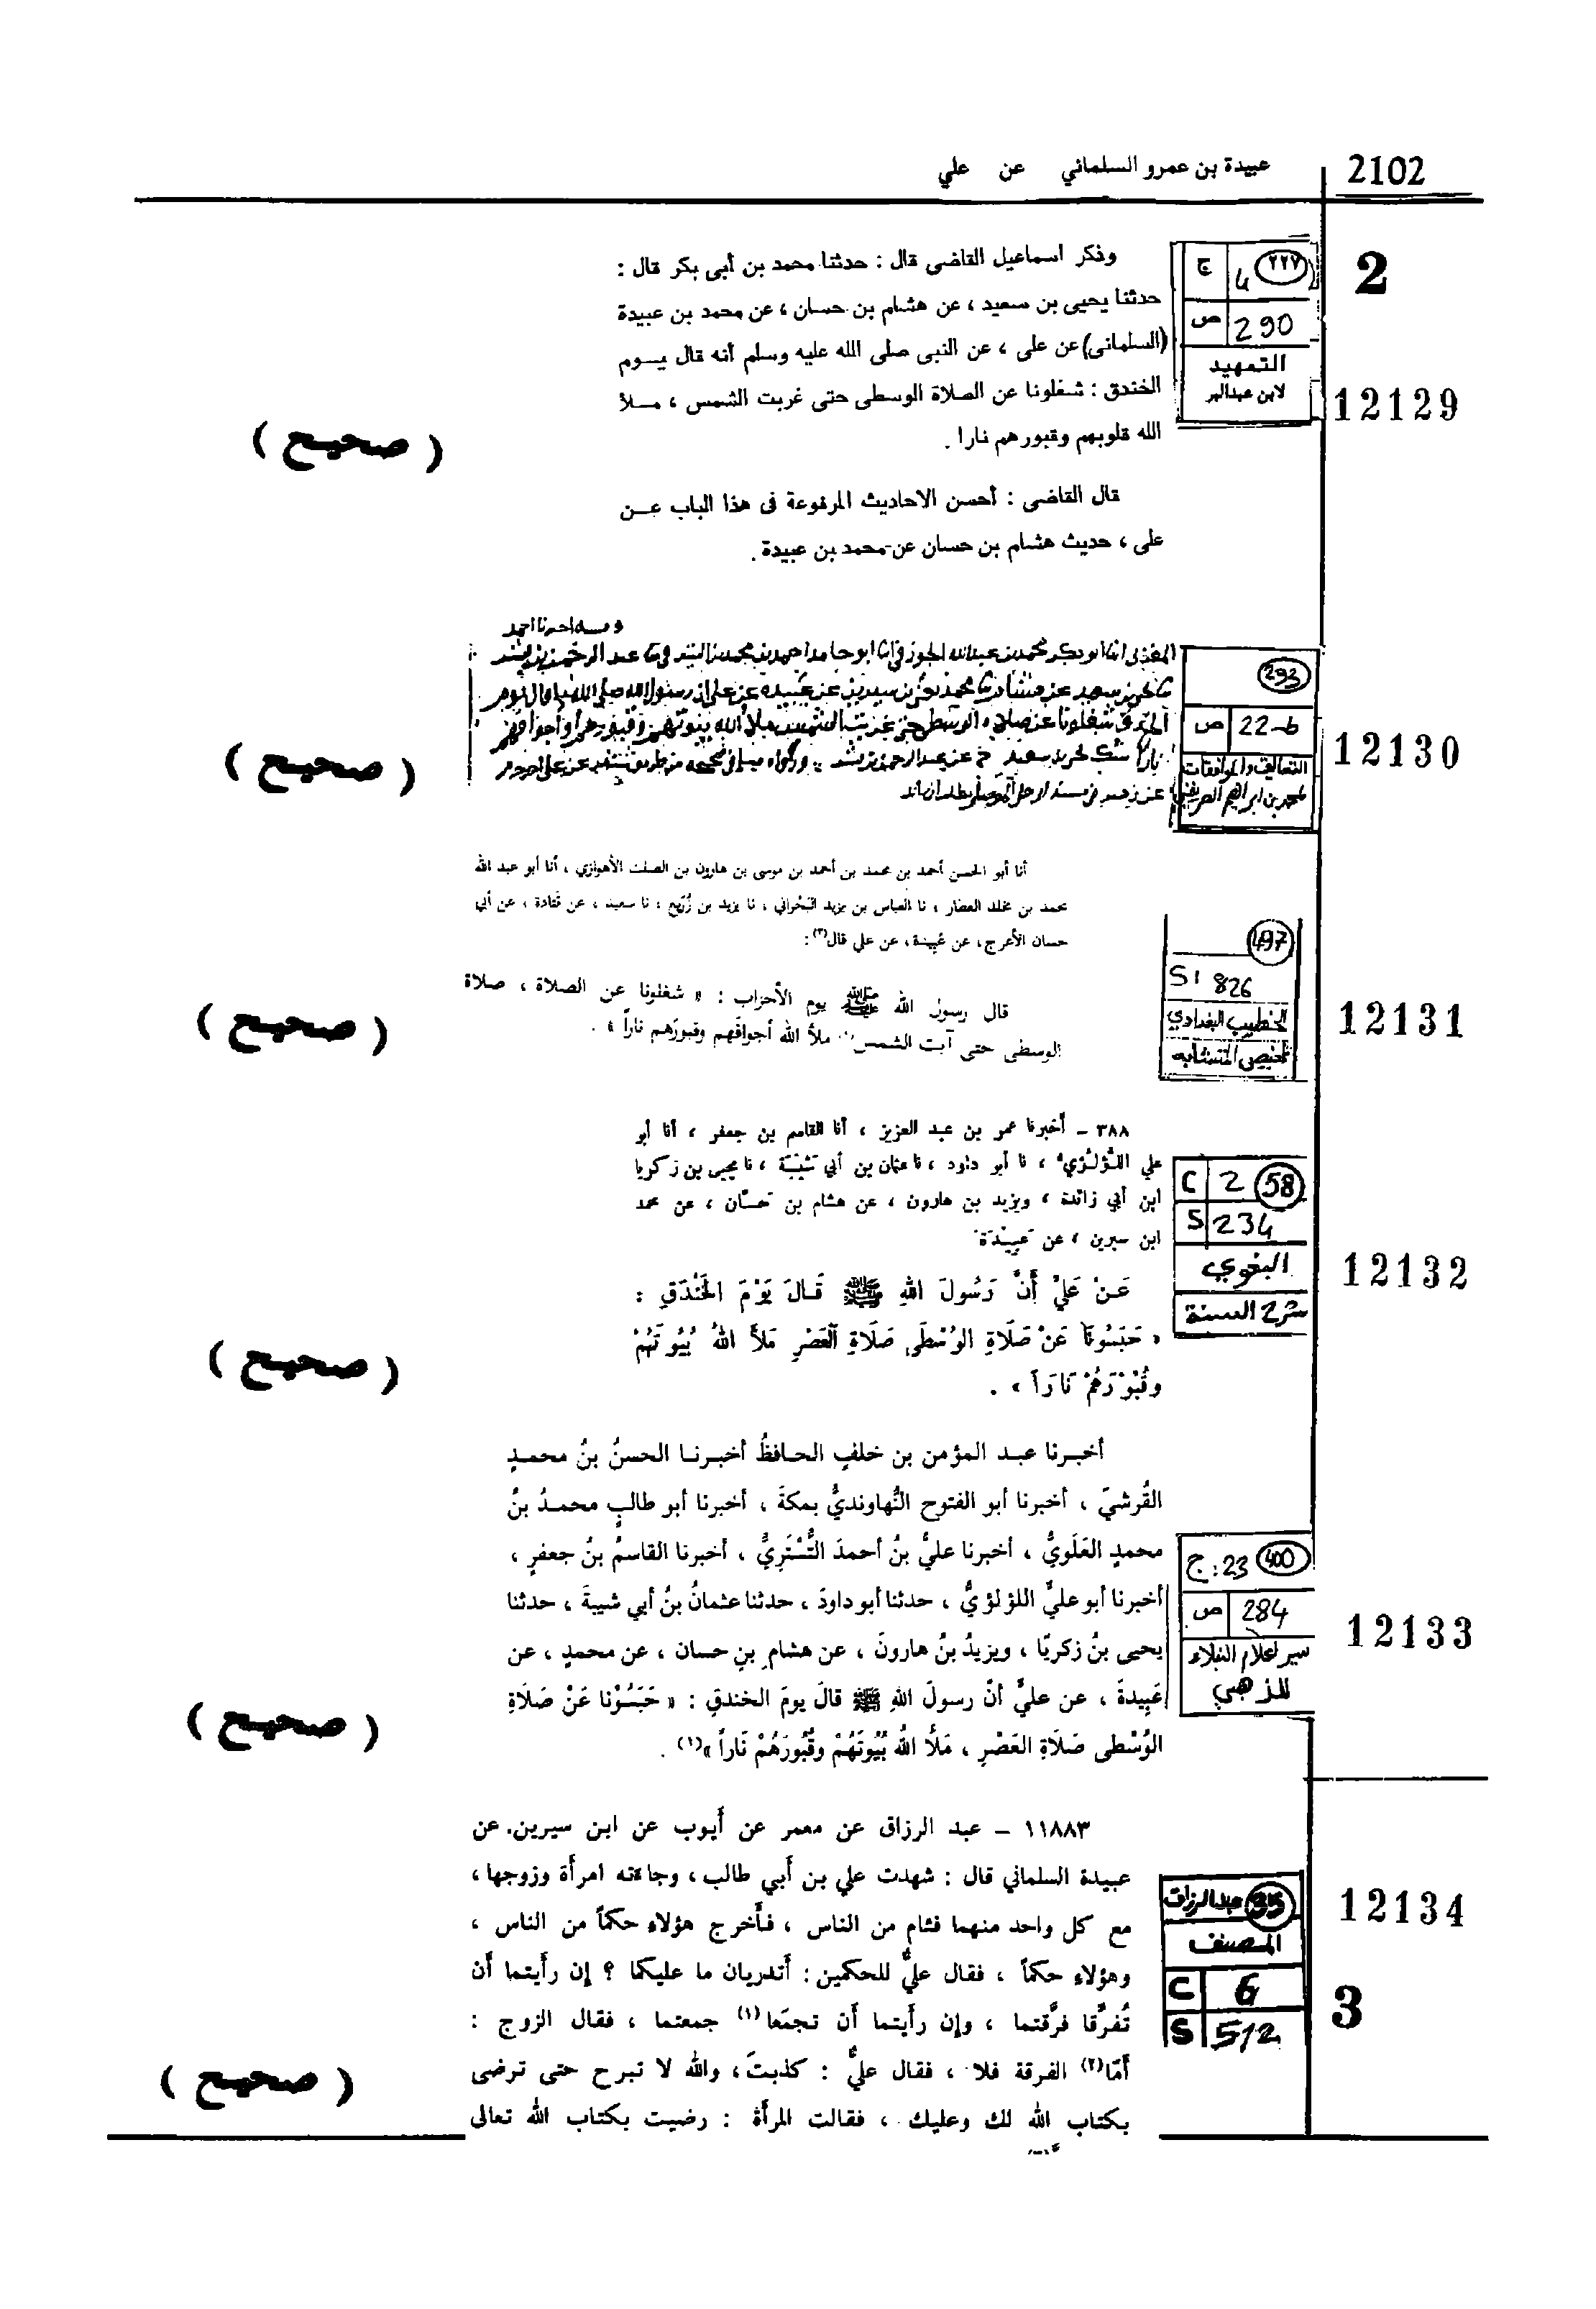 2102
عبيدة بن عمرو السلماني عن علي
2
٢٢٧ 4 ج
290 ص
التمهيد
لابن عبدالبر
12129
وذكر اسماعيل القاضى قال : حدثنا محمد بن أبى بكر قال :
حدثنا يحيى بن سعيد ، عن هشام بن حسان ، عن محمد بن عبيدة
(السلمانى) عن على ، عن النبى صلى الله عليه وسلم أنه قال يــوم
الخندق : شغلونا عن الصلاة الوسطى حتى غربت الشمس ، مــلأ
الله قلوبهم وقبورهم نارا .
( صحيح )
قال القاضى : أحسن الاحاديث المرفوعة فى هذا الباب عــن
على ، حديث هشام بن حسان عن محمد بن عبيدة .
293
22-b ص
12130
احمد
ابو بكر محمد بن عبدالله الجوزقي ابو حامد احمد بن محمد عبد الرحمن بن بشر
محمد بن سيرين عن عبيده عن علي ان رسول الله صلى الله
شغلونا عن صلاه الوسطى حتى غربت الشمس ملأ الله بيوتهم وقبورهم وأجوافهم
نارا
( صحيح )
497
S: 826
الخطيب البغدادي
تلخيص المتشابه
12131
أنا أبو الحسن أحمد بن محمد بن أحمد بن موسى بن هارون بن الصلت الأهوازي ، أنا أبو عبد الله
محمد بن مخلد العطار ، نا العباس بن يزيد البحراني ، نا يزيد بن زُرَيع ، نا سعيد ، عن قتادة ، عن أبي
حسان الأعرج، عن عَبِيدة، عن علي قال(٣) :
قال رسول الله ﷺ يوم الأحزاب : « شغلونا عن الصلاة ، صلاة
الوسطى حتى آبت الشمس ملأ الله أجوافَهم وقبورَهم ناراً » .
( صحيح )
58 2 C
234 S
البغوي
شرح السنة
12132
٣٨٨ – أخبرنا عمر بن عبد العزيز ، أنا القاسم بن جعفر ، أنا أبو
علي اللؤلؤي ، نا أبو داود ، نا عثمان بن أبي شيبة ، نا يحيى بن زكريا
ابن أبي زائدة ، ويزيد بن هارون ، عن هشام بن حسّان ، عن محمد
ابن سيرين ، عن عَبِيدَة
عَنْ عَلِيٍّ أَنَّ رَسُولَ اللهِ ﷺ قَالَ يَوْمَ الخَنْدَقِ :
« حَبَسُونَا عَنْ صَلَاةِ الوُسْطَى صَلَاةِ العَصْرِ مَلأَ اللهُ بُيُوتَهُمْ
وقُبُورَهُمْ نَارَاً » .
( صحيح )
400 23 : ج
284 ص
سير اعلام النبلاء
للذهبي
12133
أخبرنا عبد المؤمن بن خلفٍ الحافظُ أخبرنا الحسنُ بنُ محمدٍ
القُرشيّ ، أخبرنا أبو الفتوح النُّهاونديُّ بمكةَ ، أخبرنا أبو طالبٍ محمدُ بنُ
محمدٍ العَلَويُّ ، أخبرنا عليُّ بنُ أحمدَ التُّسْتَرِيُّ ، أخبرنا القاسمُ بنُ جعفرٍ ،
أخبرنا أبو عليٍّ اللؤلؤيُّ ، حدثنا أبو داودَ ، حدثنا عثمانُ بنُ أبي شيبةَ ، حدثنا
يحيى بنُ زكريّا ، ويزيدُ بنُ هارونَ ، عن هشامِ بنِ حسان ، عن محمدٍ ، عن
عَبِيدةَ ، عن عليٍّ أنّ رسولَ اللهِ ﷺ قالَ يومَ الخندقِ : « حَبَسُوْنا عَنْ صَلَاةِ
الوُسْطى صَلَاةِ العَصْرِ ، مَلأَ اللهُ بُيُوتَهُمْ وقُبُورَهُمْ نَاراً »(١) .
( صحيح )
35 عبد الرزاق
المصنف
6 C
512 S
12134
3
١١٨٨٣ – عبد الرزاق عن معمر عن أيوب عن ابن سيرين. عن
عبيدة السلماني قال : شهدت علي بن أبي طالب ، وجاءته امرأة وزوجها ،
مع كل واحد منهما فئام من الناس ، فأخرج هؤلاءِ حكماً من الناس ،
وهؤلاءِ حكماً ، فقال عليٌّ للحكمين : أتدريان ما عليكما ؟ إن رأيتما أن
تُفرِّقا فرَّقتما ، وإن رأيتما أن تجمّعا(١) جمعتما ، فقال الزوج :
أمّا(٢) الفرقة فلا ، فقال عليٌّ : كذبتَ ، والله لا تبرح حتى ترضى
بكتاب الله لك وعليك ، فقالت المرأة : رضيت بكتاب الله تعالى
( صحيح )